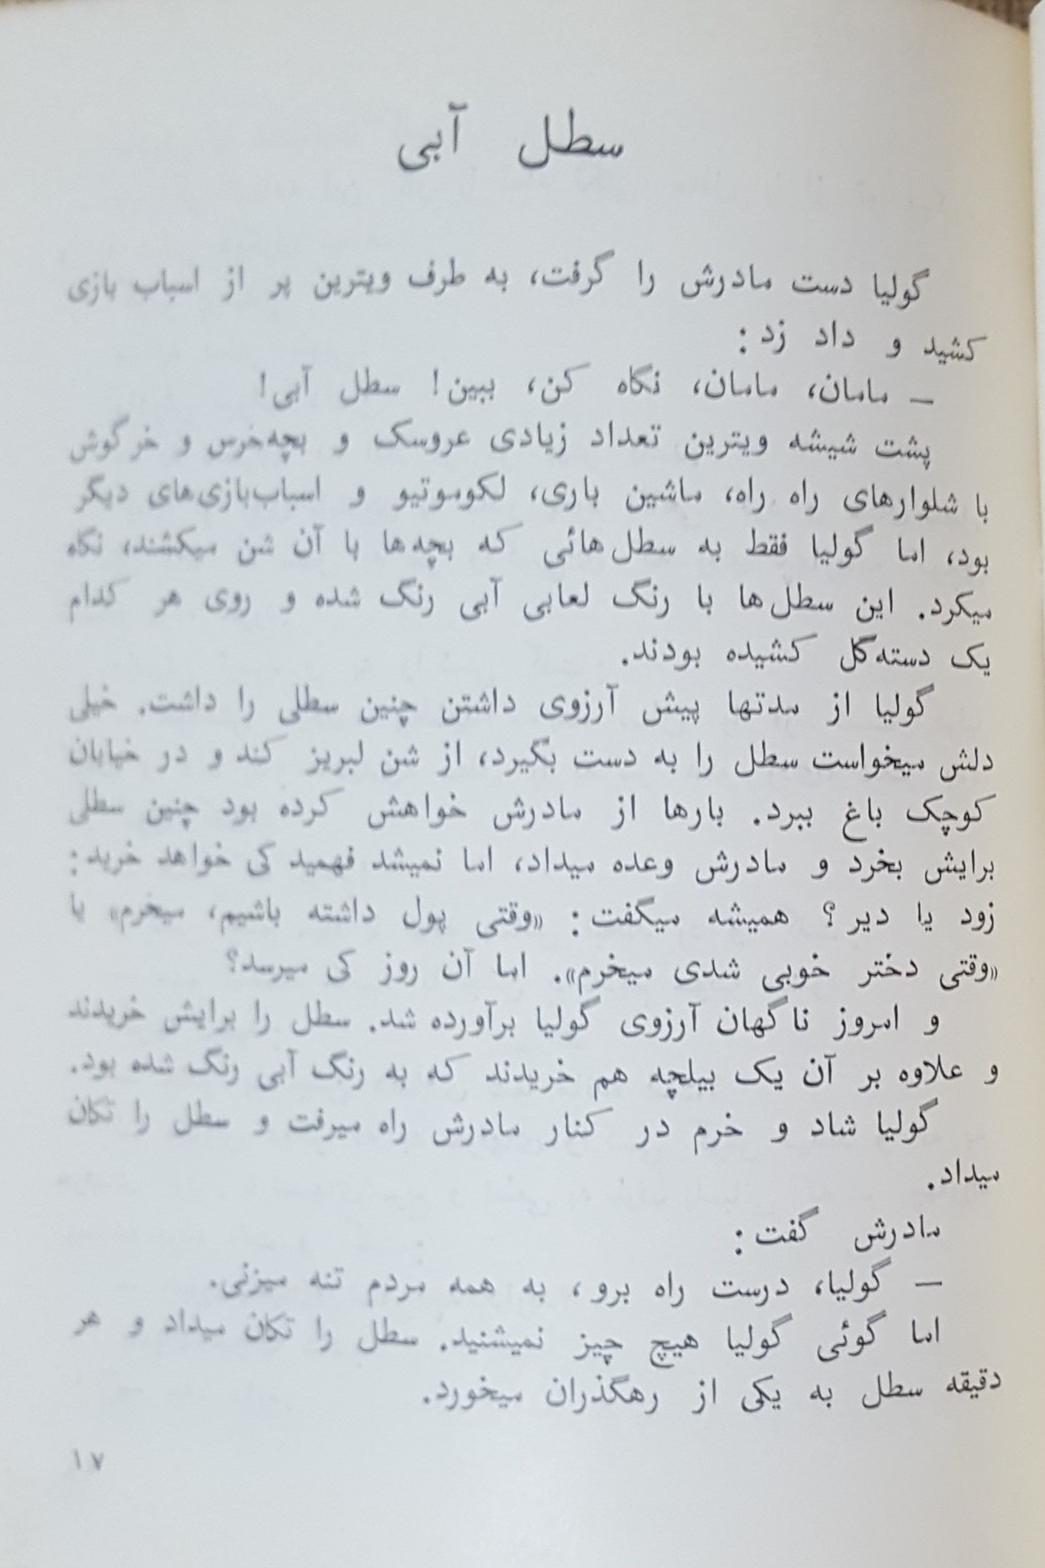 سطل آبی
گولیا دست مادرش را گرفت، به طرف ویترین پر از اسباب بازی
کشید و داد زد:
– مامان، مامان، نگاه کن، ببین! سطل آبی!
پشت شیشه ویترین تعداد زیادی عروسک و بچه‌خرس و خرگوش
با شلوارهای راه راه، ماشین باری، لکوموتیو و اسباب‌بازی‌های دیگر
بود، اما گولیا فقط به سطل‌هائی که بچه‌ها با آن شن میکشند، نگاه
میکرد. این سطل‌ها با رنگ لعابی آبی رنگ شده و روی هر کدام
یک دسته‌گل کشیده بودند.
گولیا از مدتها پیش آرزوی داشتن چنین سطلی را داشت. خیلی
دلش میخواست سطل را به دست بگیرد، از شن لبریز کند و در خیابان
کوچک باغ ببرد. بارها از مادرش خواهش کرده بود چنین سطلی
برایش بخرد و مادرش وعده میداد، اما نمیشد فهمید کی خواهد خرید:
زود یا دیر؟ همیشه میگفت: «وقتی پول داشته باشیم، میخرم» یا
«وقتی دختر خوبی شدی میخرم». اما آن روز کی میرسد؟
و امروز ناگهان آرزوی گولیا برآورده شد. سطل را برایش خریدند
و علاوه بر آن یک بیلچه هم خریدند که به رنگ آبی رنگ شده بود.
گولیا شاد و خرم در کنار مادرش راه میرفت و سطل را تکان
میداد.
مادرش گفت:
– گولیا، درست راه برو، به همه مردم تنه میزنی.
اما گوئی گولیا هیچ چیز نمیشنید. سطل را تکان میداد و هر
دقیقه سطل به یکی از رهگذران میخورد.
۱۷